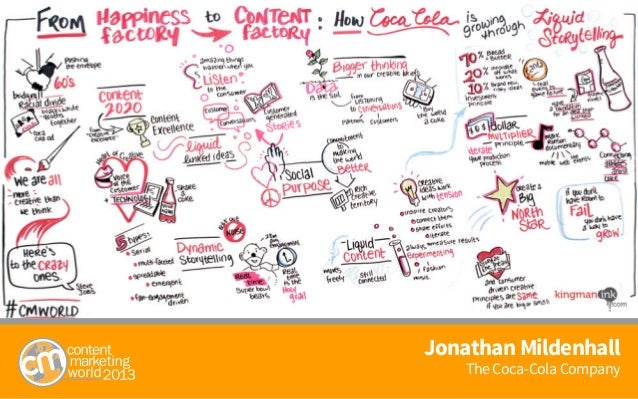 FROM HAPPINESS FACTORY to CONTENT FACTORY : HOW Coca Cola is growing through Liquid Storytelling
Pushing the envelope
60's
bridging
Racial divide
together
Coca Cola ad
We are all
more
creative than
we think.
Here's
to the CRAZY
ones
Steve
Jobs
#CMWORLD
Content
2020
from
Creative
Excellence
Content
Excellence
Heart of Creative
Voice
of the
Customer
+ TECHNOLOGY
Share
a
Coke
5 types:
Serial
multi-faceted
spreadable
emergent
fan-engagement
driven
Dynamic
Storytelling
amazing things
happen when you
Listen
to the
consumer
Customer
Conversations
consumer
generated
Stories
liquid
linked ideas
Noise
Real
time
Super bowl
bears
Real
time
is the
Holy
grail
Social
Purpose
Commitment
to
making
the world
Better
Rich
Creative
territory
Data
is the soil
Bigger thinking
in our creative briefs
from
Listening
to Conversations
Partners
Customers
Buy
the world
a Coke
Creative
ideas work
with tension
inspire creators
connect them
share efforts
iterate
Liquid
Content
moves
freely
still
connected
always measure results
Experimenting
music
fashion
70% Bread
+ Butter
20% innovate
off what
works
10% brand new
ideas
investment
Principle
dollar
Multiplier
principle
iterate
your production
process
make
Human
documentary
mobile
Connecting
create a
Big
North
Star
if you don't
have Room to
Fail
you don't have
a way to
grow
and consumer
driven creative
Principles are Same
if you are big or small
kingmanink
.com
content
marketing
world 2013
Jonathan Mildenhall
The Coca-Cola Company